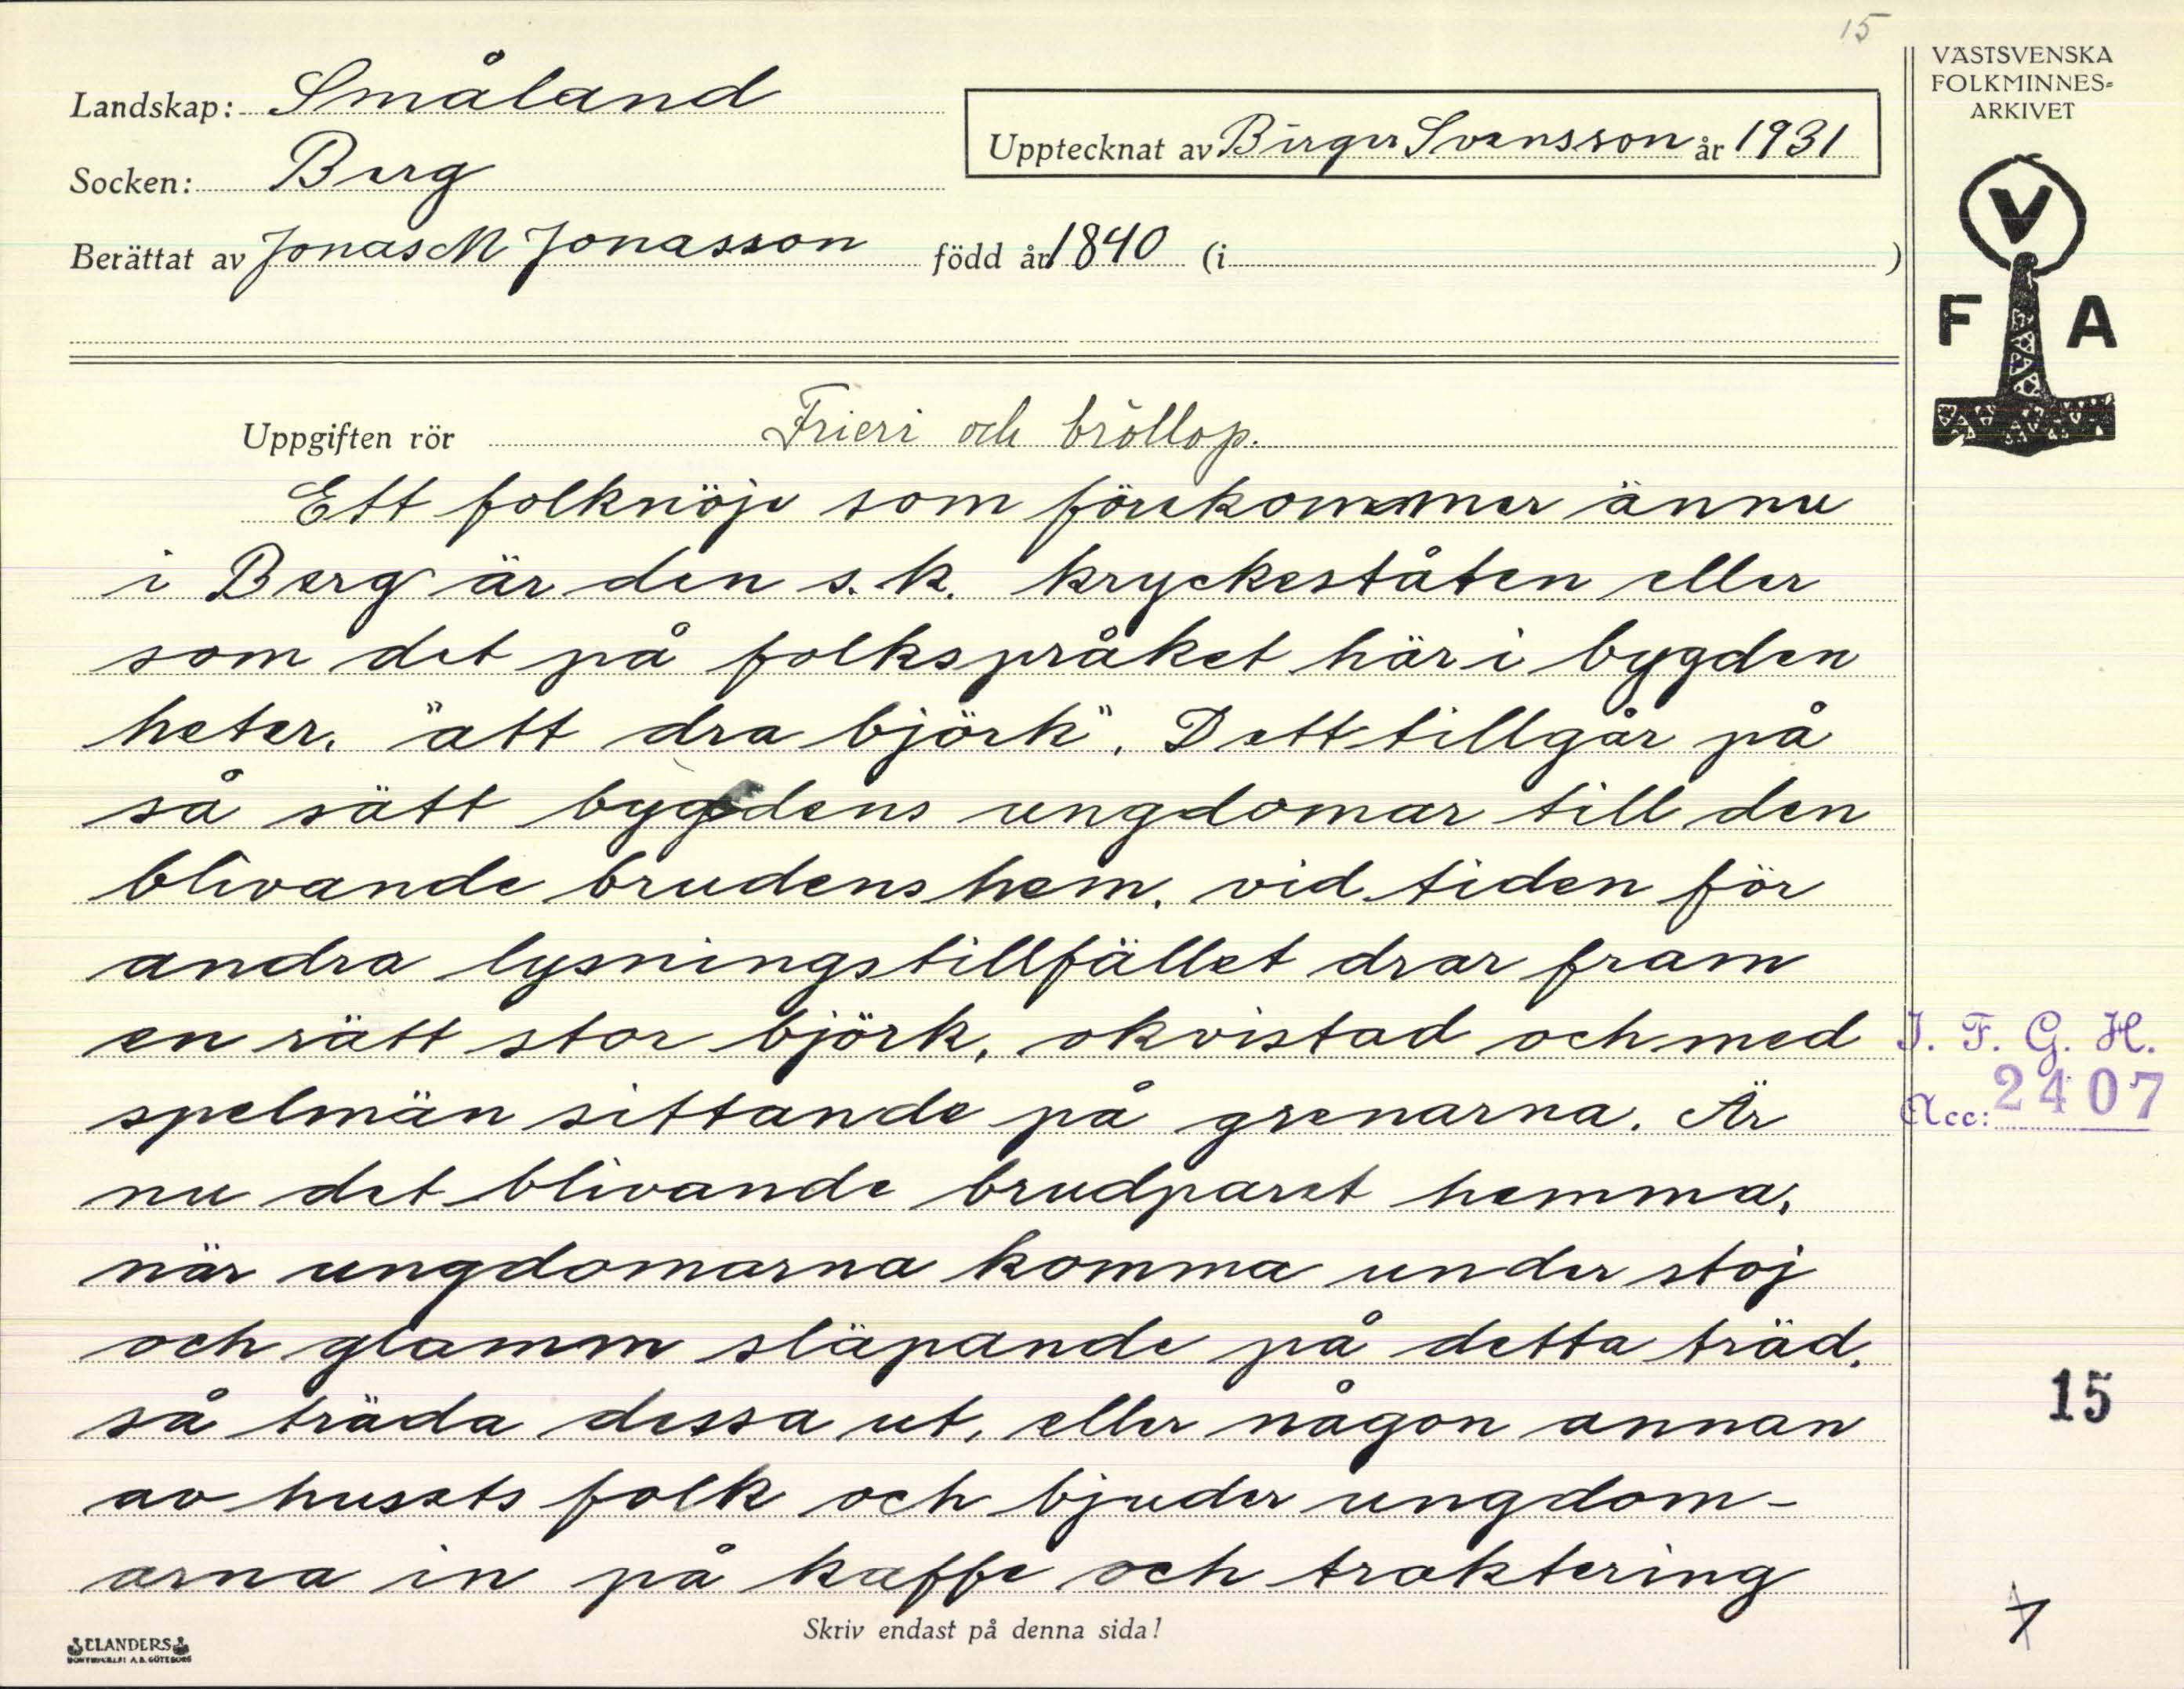 15
VÄSTSVENSKA
FOLKMINNES-
ARKIVET
Landskap: Småland
Upptecknat av Birger Svensson år 1931
Socken: Berg
Berättat av Jonas M Jonasson född år 1840 (i )
V
F A
Uppgiften rör Frieri och bröllop.
Ett folknöje som förekommer ännu
i Berg är den s.k. kryckeståten eller
som det på folkspråket här i bygden
heter, "att dra björk". Dett tillgår på
så sätt bygdens ungdomar till den
blivande brudens hem, vid tiden för
andra lysningstillfället drar fram
en rätt stor björk, okvistad och med
spelmän sittande på grenarna. Är
nu det blivande brudparet hemma,
när ungdomarna komma under stoj
och glamm släpande på detta träd,
så träda dessa ut, eller någon annan
av husets folk och bjuder ungdom-
arna in på kaffe och traktering
I. F. G. H.
Acc: 2407
15
Skriv endast på denna sida!
ELANDERS